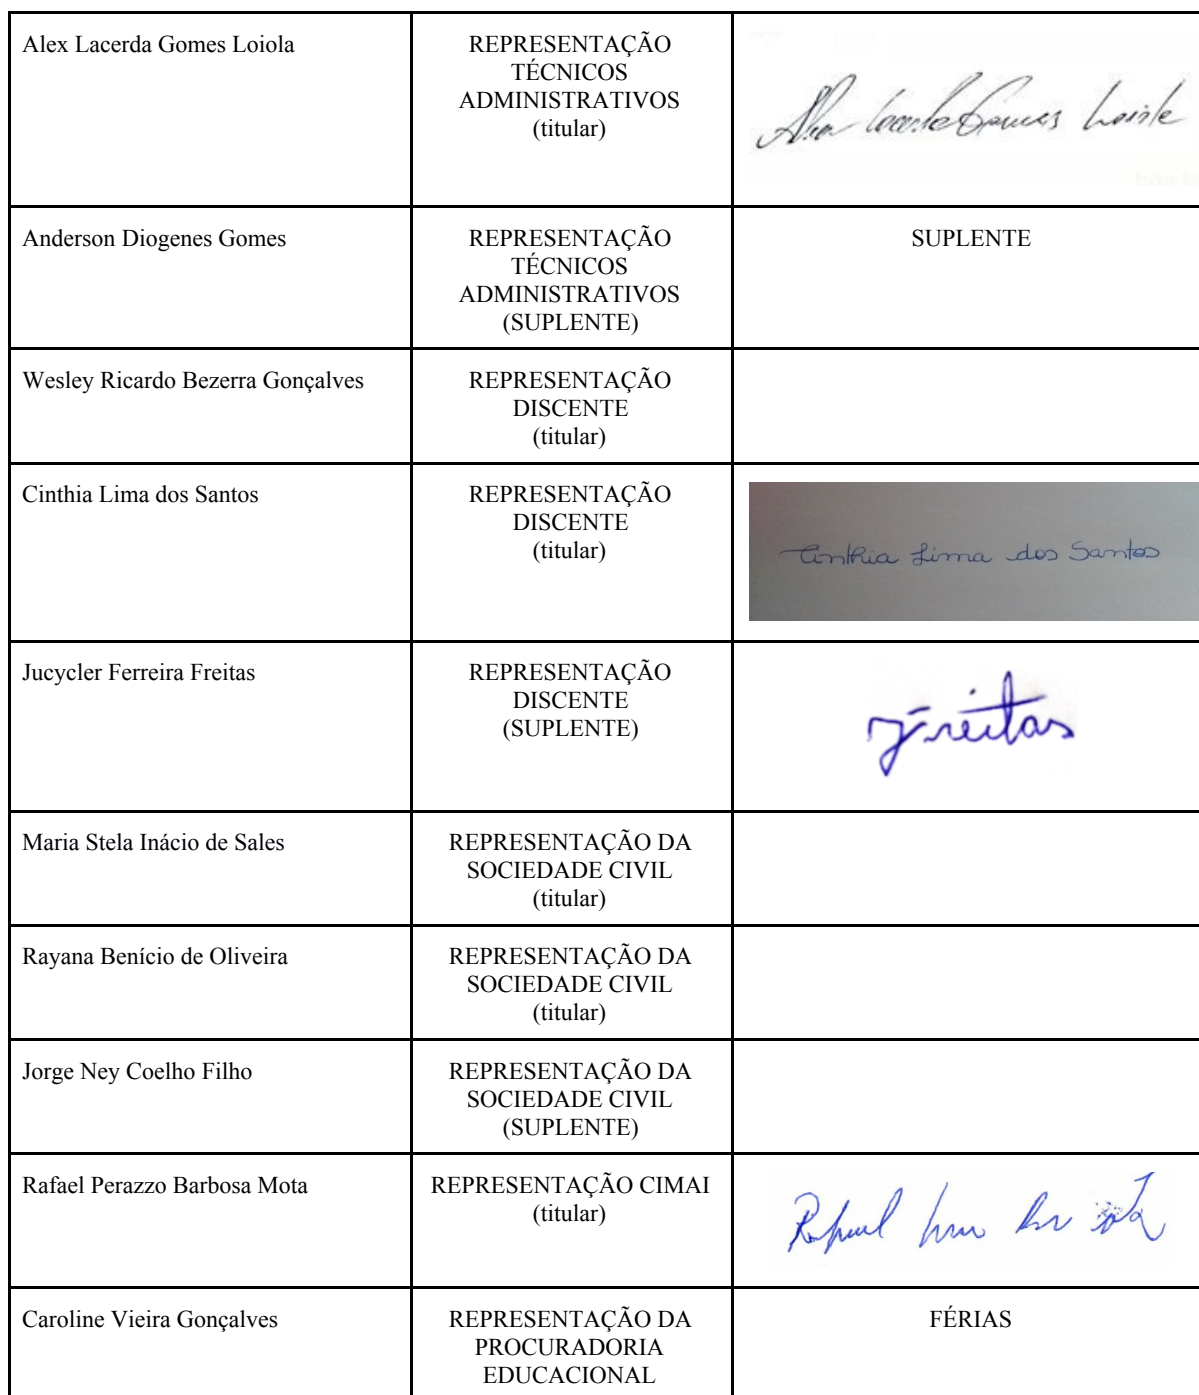 Alex Lacerda Gomes Loiola
REPRESENTAÇÃO
TÉCNICOS
ADMINISTRATIVOS
(titular)
Anderson Diogenes Gomes
REPRESENTAÇÃO
TÉCNICOS
ADMINISTRATIVOS
(SUPLENTE)
SUPLENTE
Wesley Ricardo Bezerra Gonçalves
REPRESENTAÇÃO
DISCENTE
(titular)
Cinthia Lima dos Santos
REPRESENTAÇÃO
DISCENTE
(titular)
Cinthia Lima dos Santos
Jucycler Ferreira Freitas
REPRESENTAÇÃO
DISCENTE
(SUPLENTE)
JFreitas
Maria Stela Inácio de Sales
REPRESENTAÇÃO DA
SOCIEDADE CIVIL
(titular)
Rayana Benício de Oliveira
REPRESENTAÇÃO DA
SOCIEDADE CIVIL
(titular)
Jorge Ney Coelho Filho
REPRESENTAÇÃO DA
SOCIEDADE CIVIL
(SUPLENTE)
Rafael Perazzo Barbosa Mota
REPRESENTAÇÃO CIMAI
(titular)
Rafael
Caroline Vieira Gonçalves
REPRESENTAÇÃO DA
PROCURADORIA
EDUCACIONAL
FÉRIAS